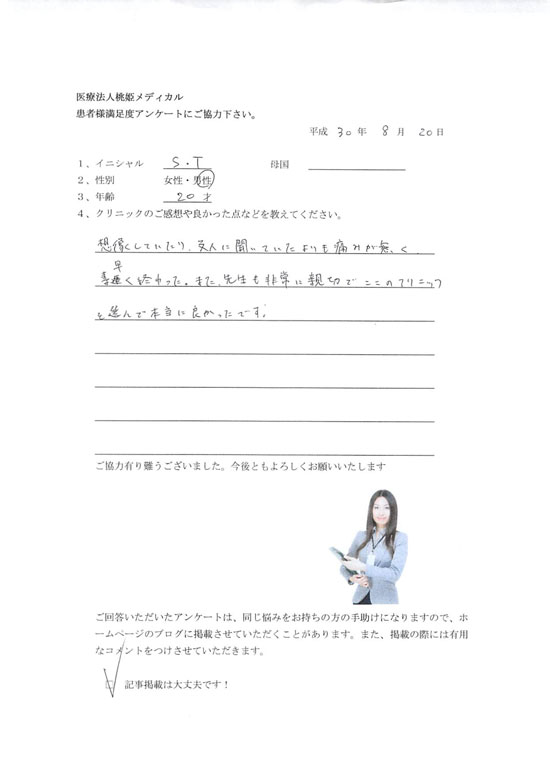 医療法人桃姫メディカル
患者様満足度アンケートにご協力下さい。
平成 30 年 8 月 20 日
1、イニシャル S・T 母国
2、性別 女性・男性
3、年齢 20才
4、クリニックのご感想や良かった点などを教えてください。
想像していたり、友人に聞いていたよりも痛みが無く、
早く終わった。また、先生も非常に親切でここのクリニック
を選んで本当に良かったです。
ご協力有り難うございました。今後ともよろしくお願いいたします
ご回答いただいたアンケートは、同じ悩みをお持ちの方の手助けになりますので、ホ
ームページのブログに掲載させていただくことがあります。また、掲載の際には有用
なコメントをつけさせていただきます。
記事掲載は大丈夫です！